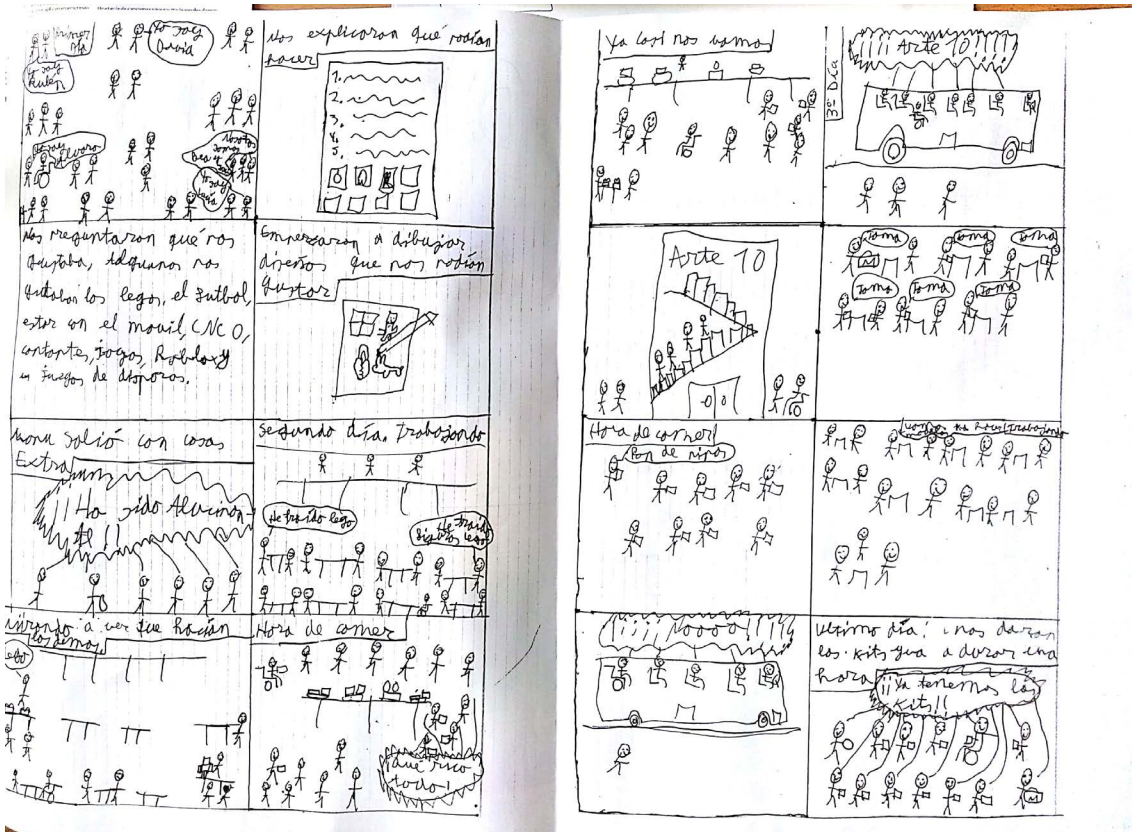 Primer
Día
Yo soy
Yo soy
Rubén
Yo soy
Álvaro
Nosotros
somos
Yo soy
Nos explicaron qué podían
hacer
1.
2.
3.
4.
5.
Nos preguntaron qué nos
gustaba, Algunos nos
gustaban los legos, el futbol,
estar con el movil, CNCO,
cantantes, juegos, Roblox y
en juegos de disparos.
Empezaron a dibujar
diseños que nos podían
gustar
Monu salió con cosas
Extra
¡¡Ha sido
Segundo día. Trabajando
He traído lego
He traído
lego
Mirando a ver que hacían
los demas.
Hora de comer
¡Qué rico
todo!
Ya casi nos vamos!
3º Día
¡¡¡¡¡Arte 10!!!!!
Arte 10
Toma
Toma
Toma
Toma
Toma
Toma
Hora de comer!
Pan de pipas
trabajando
¡¡¡¡¡Noooo!!!!!
Ultimo día! ¡nos daran
los kits y va a durar una
hora
¡¡Ya tenemos los
kits!!